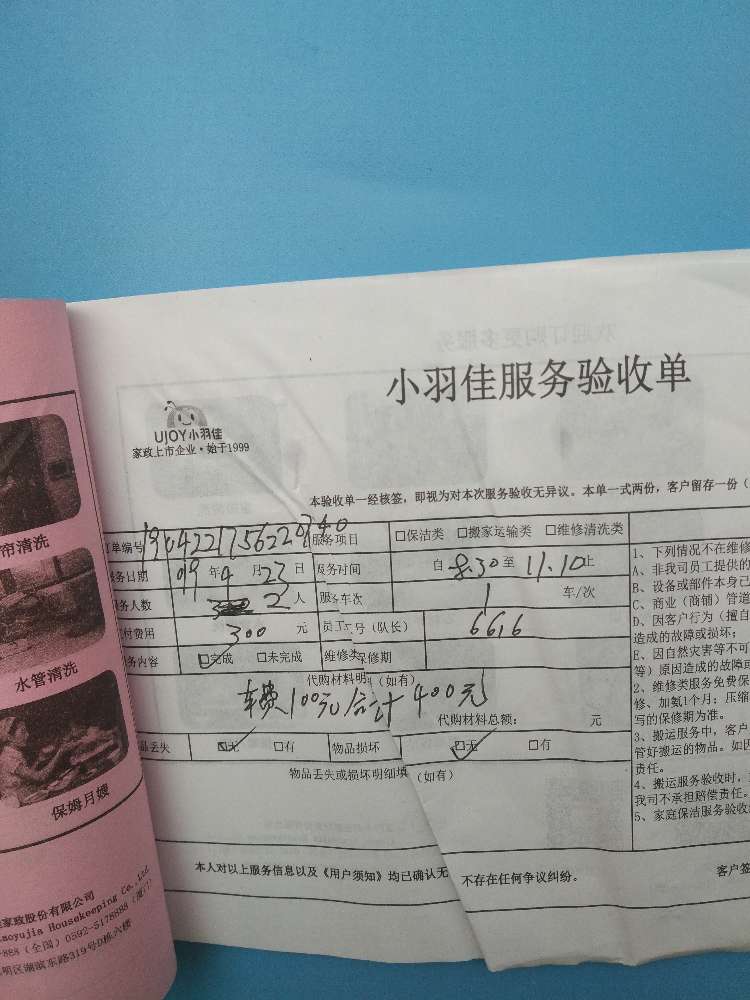 小羽佳服务验收单
UJOY小羽佳
家政上市企业·始于1999
本验收单一经核签，即视为对本次服务验收无异议。本单一式两份，客户留存一份（
单编号 服务项目 □保洁类 □搬家运输类 □维修清洗类
服务日期 19年4月23日 服务时间 自8.30至11.10止
务人数 2人 服务车次 1 车/次
付费用 300元 员工工号（队长） 6616
务内容 □完成 □未完成 维修类保修期
代购材料明 （如有）
车费100元合计400元
代购材料总额： 元
品丢失 □无 □有 物品损坏 □无 □有
物品丢失或损坏明细填 （如有）
本人对以上服务信息以及《用户须知》均已确认无 不存在任何争议纠纷。 客户签
1、下列情况不在维修
A、非我司员工提供的
B、设备或部件本身已
C、商业（商铺）管道
D、因客户行为（擅自
造成的故障或损坏；
E、因自然灾害等不可
等）原因造成的故障或
2、维修类服务免费保
修、加氨1个月；压缩
写的保修期为准。
3、搬运服务中，客户
管好搬运的物品。如因
责任。
4、搬运服务验收时，
我司不承担赔偿责任。
5、家庭保洁服务验收
帘清洗
水管清洗
保姆月嫂
家政股份有限公司
aoyujia Housekeeping Co.,Ltd
888（全国）0592-5178888（厦门）
明区湖滨东路319号D栋六楼